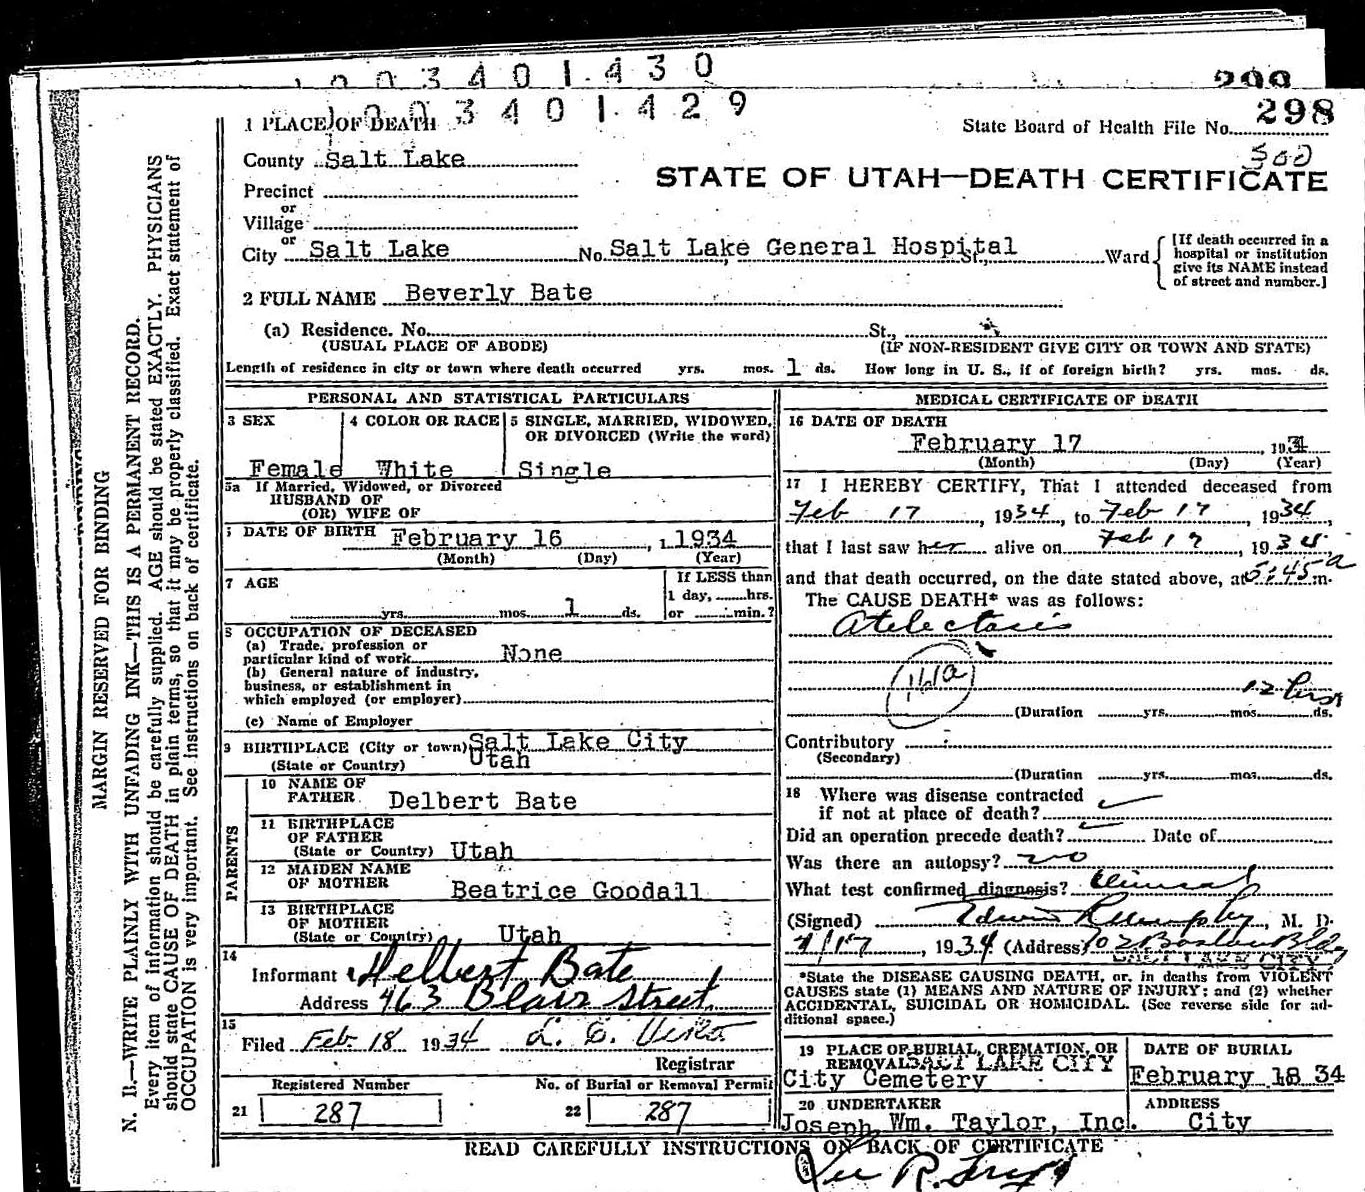 3 4 0 1 4 3 0
299
3 4 0 1 4 2 9
298
1 PLACE OF DEATH
State Board of Health File No.
300
County Salt Lake
STATE OF UTAH—DEATH CERTIFICATE
Precinct
or
Village
or
City Salt Lake No. Salt Lake General Hospital St., Ward
[If death occurred in a
hospital or institution
give its NAME instead
of street and number.]
2 FULL NAME Beverly Bate
(a) Residence. No. St.,
(USUAL PLACE OF ABODE) (IF NON-RESIDENT GIVE CITY OR TOWN AND STATE)
Length of residence in city or town where death occurred yrs. mos. 1 ds. How long in U. S., if of foreign birth? yrs. mos. ds.
PERSONAL AND STATISTICAL PARTICULARS
3 SEX
Female
4 COLOR OR RACE
White
5 SINGLE, MARRIED, WIDOWED,
OR DIVORCED (Write the word)
Single
5a If Married, Widowed, or Divorced
HUSBAND OF
(OR) WIFE OF
DATE OF BIRTH February 16, 1934
(Month) (Day) (Year)
7 AGE
yrs. mos. 1 ds.
If LESS than
1 day, hrs.
or min.?
8 OCCUPATION OF DECEASED
(a) Trade, profession or
particular kind of work None
(b) General nature of industry,
business, or establishment in
which employed (or employer)
(c) Name of Employer
9 BIRTHPLACE (City or town) Salt Lake City
(State or Country) Utah
PARENTS
10 NAME OF
FATHER Delbert Bate
11 BIRTHPLACE
OF FATHER
(State or Country) Utah
12 MAIDEN NAME
OF MOTHER Beatrice Goodall
13 BIRTHPLACE
OF MOTHER
(State or Country) Utah
14
Informant Delbert Bate
Address 463 Blair Street
15
Filed Feb 18 1934
Registrar
Registered Number No. of Burial or Removal Permit
21 287 22 287
MEDICAL CERTIFICATE OF DEATH
16 DATE OF DEATH
February 17, 1934
(Month) (Day) (Year)
17 I HEREBY CERTIFY, That I attended deceased from
Feb 17, 1934, to Feb 17, 1934,
that I last saw her alive on Feb 17, 1934,
and that death occurred, on the date stated above, at 5:45 a m.
The CAUSE DEATH* was as follows:
Atelectasis
161a
12 hrs
(Duration yrs. mos. ds.
Contributory
(Secondary)
(Duration yrs. mos. ds.
18 Where was disease contracted
if not at place of death?
Did an operation precede death? Date of
Was there an autopsy? no
What test confirmed diagnosis? Clinical
(Signed) Edwin R Murphy, M. D.
2/17, 1934 (Address) 702 Boston Bldg
SALT LAKE CITY
*State the DISEASE CAUSING DEATH, or, in deaths from VIOLENT
CAUSES state (1) MEANS AND NATURE OF INJURY; and (2) whether
ACCIDENTAL, SUICIDAL OR HOMICIDAL. (See reverse side for ad-
ditional space.)
19 PLACE OF BURIAL, CREMATION, OR
REMOVAL SALT LAKE CITY
City Cemetery
DATE OF BURIAL
February 18 34
20 UNDERTAKER
Joseph Wm. Taylor, Inc.
ADDRESS
City
READ CAREFULLY INSTRUCTIONS ON BACK OF CERTIFICATE
MARGIN RESERVED FOR BINDING
N. B.—WRITE PLAINLY WITH UNFADING INK—THIS IS A PERMANENT RECORD.
Every item of information should be carefully supplied. AGE should be stated EXACTLY. PHYSICIANS
should state CAUSE OF DEATH in plain terms, so that it may be properly classified. Exact statement of
OCCUPATION is very important. See instructions on back of certificate.